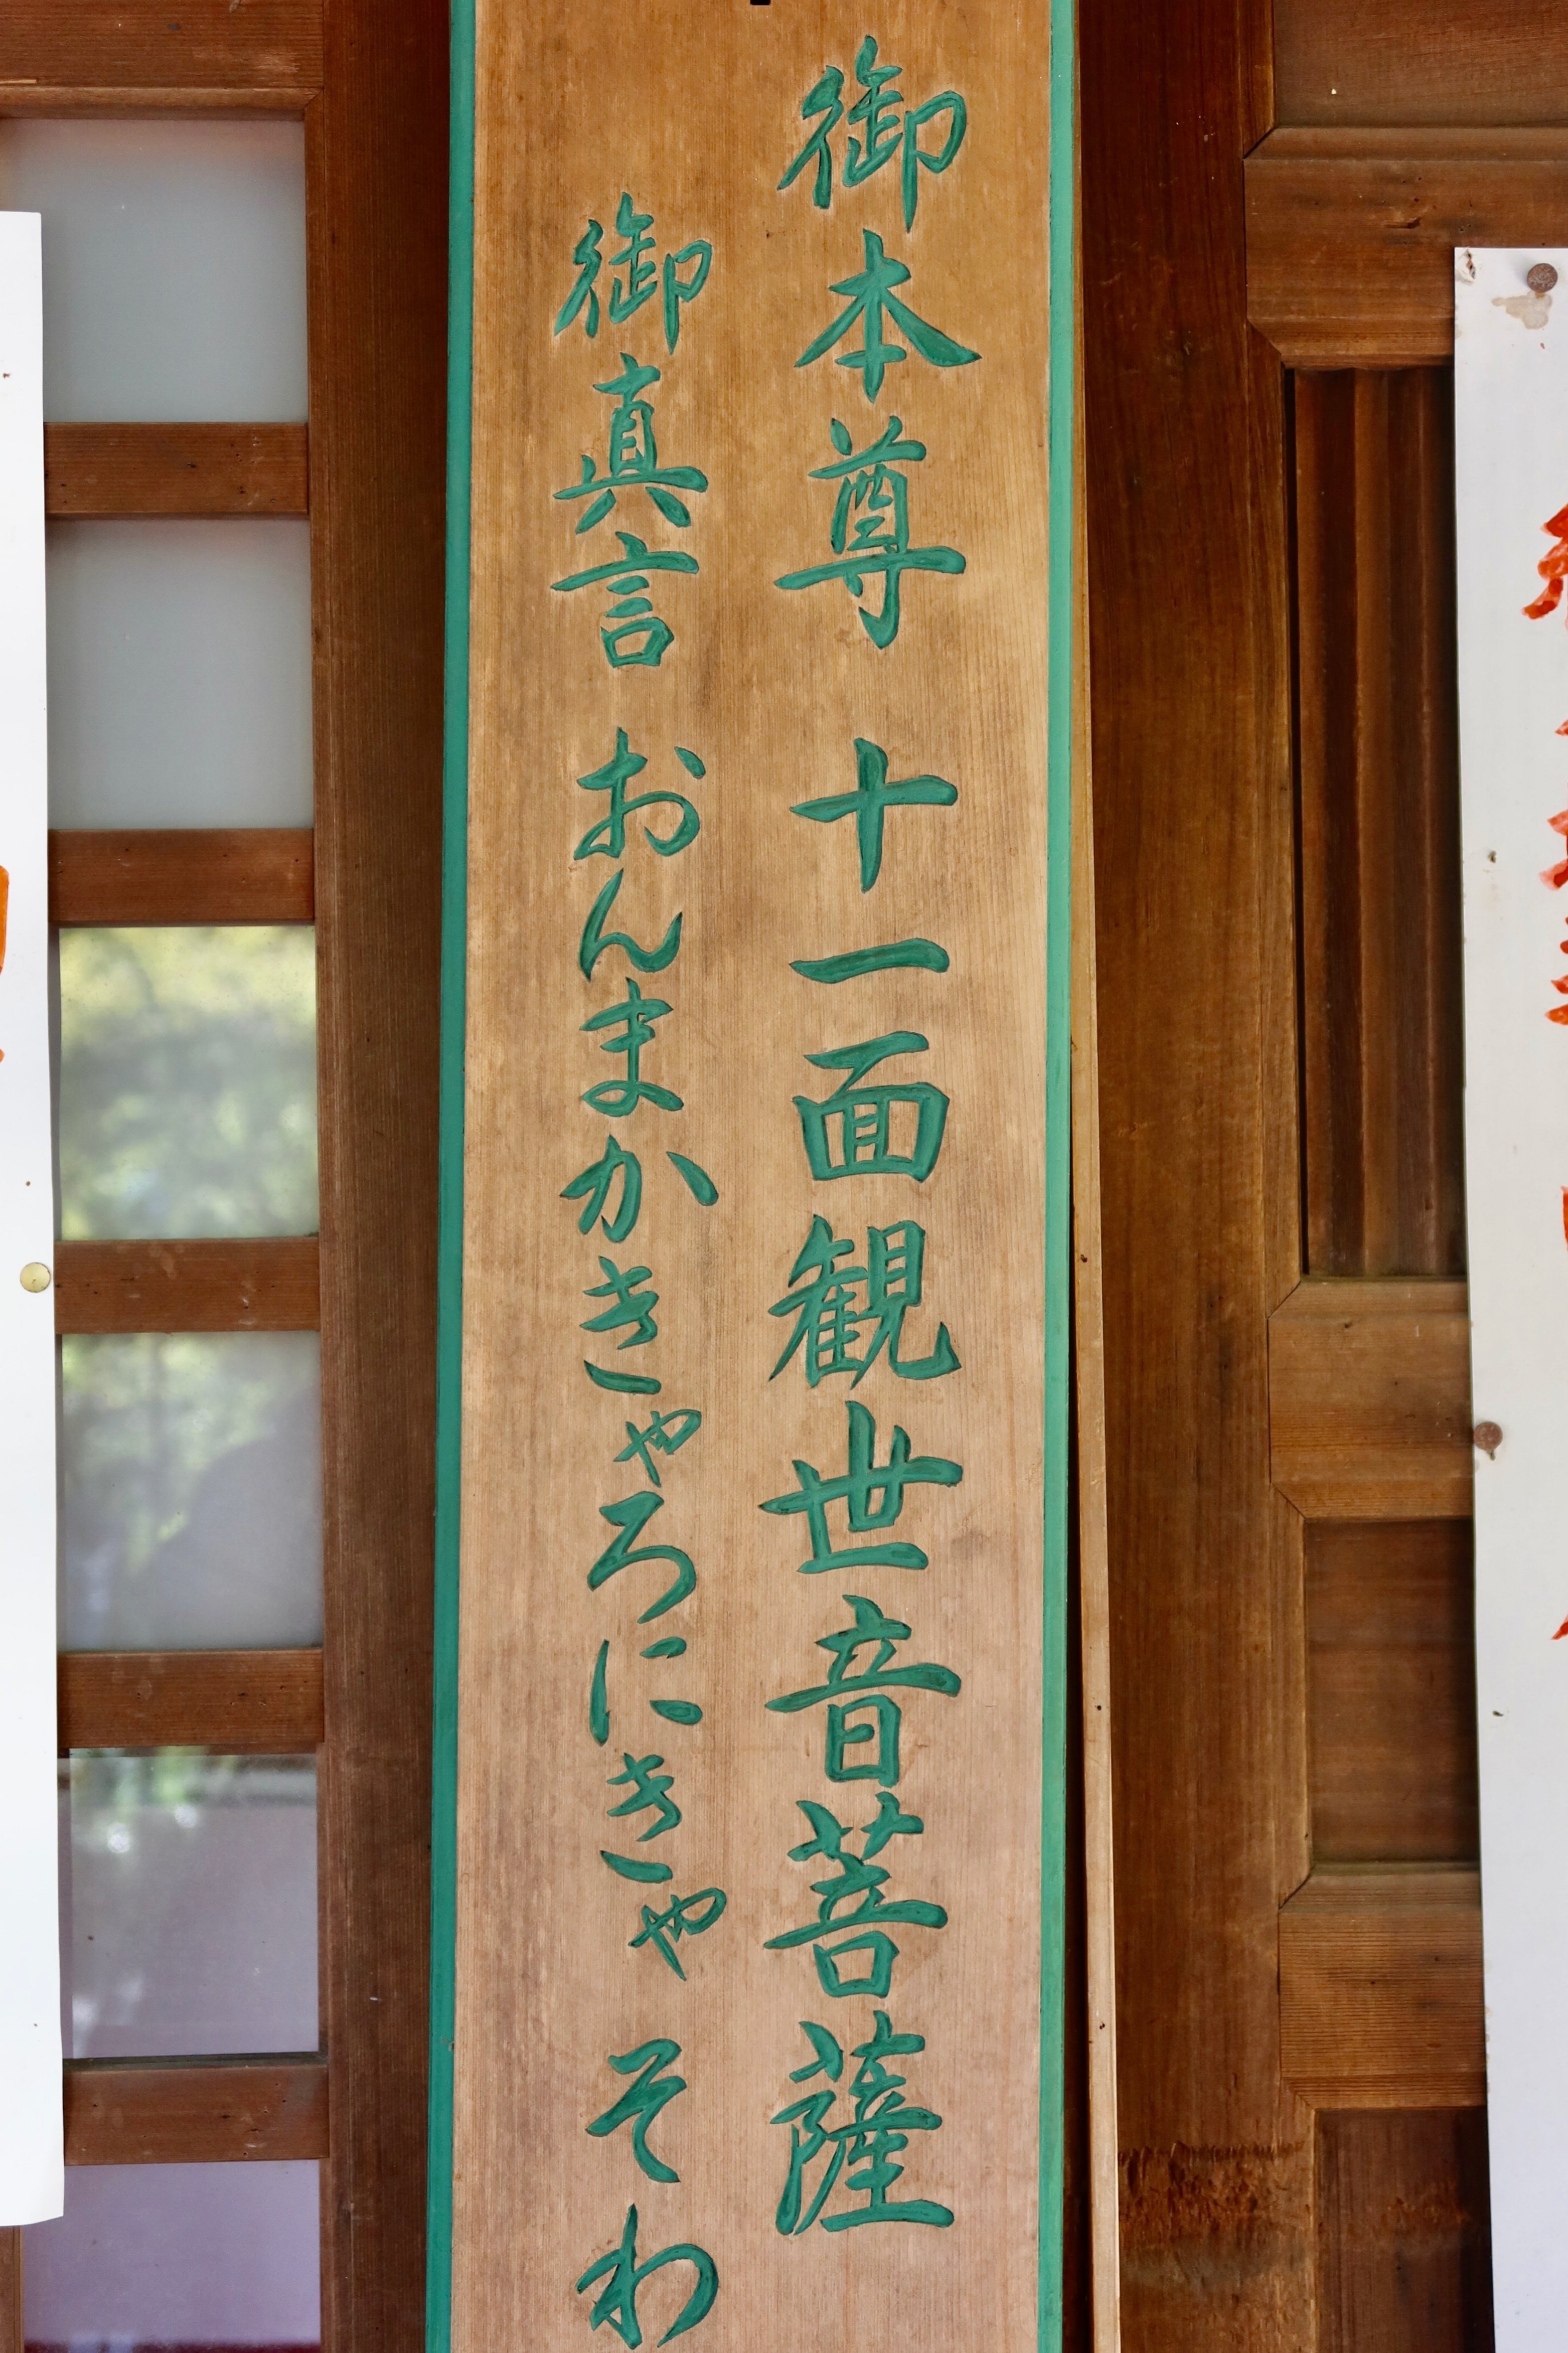 御本尊 十一面観世音菩薩
御真言 おんまかきゃろにきゃ そわ